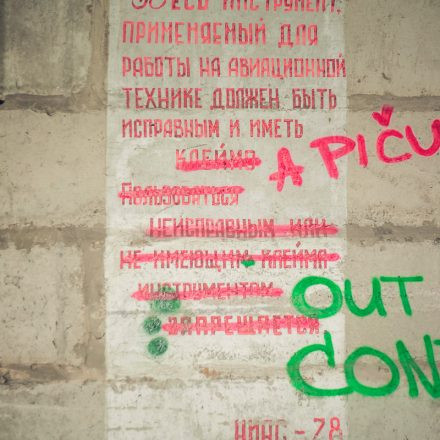 ИНСТРУМЕНТ,
ПРИМЕНЯЕМЫЙ ДЛЯ
РАБОТЫ НА АВИАЦИОННОЙ
ТЕХНИКЕ ДОЛЖЕН БЫТЬ
ИСПРАВНЫМ И ИМЕТЬ
КЛЕЙМО
A PIČU
ПОЛЬЗОВАТЬСЯ
НЕИСПРАВНЫМ ИЛИ
НЕ ИМЕЮЩИМ КЛЕЙМА
ИНСТРУМЕНТОМ
OUT
ЗАПРЕЩАЕТСЯ
CON
-78